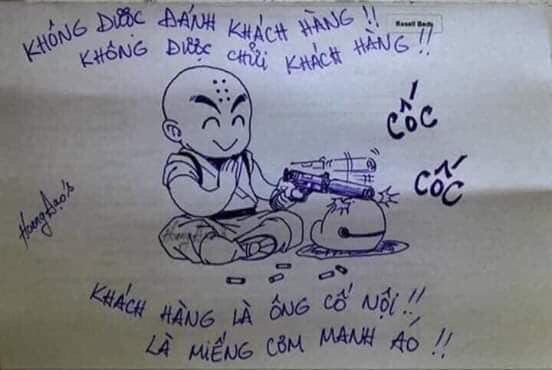 KHÔNG ĐƯỢC ĐÁNH KHÁCH HÀNG !!
KHÔNG ĐƯỢC CHỬI KHÁCH HÀNG !!
CỐC
CỐC
KHÁCH HÀNG LÀ ÔNG CỐ NỘI !!
LÀ MIẾNG CƠM MANH ÁO !!